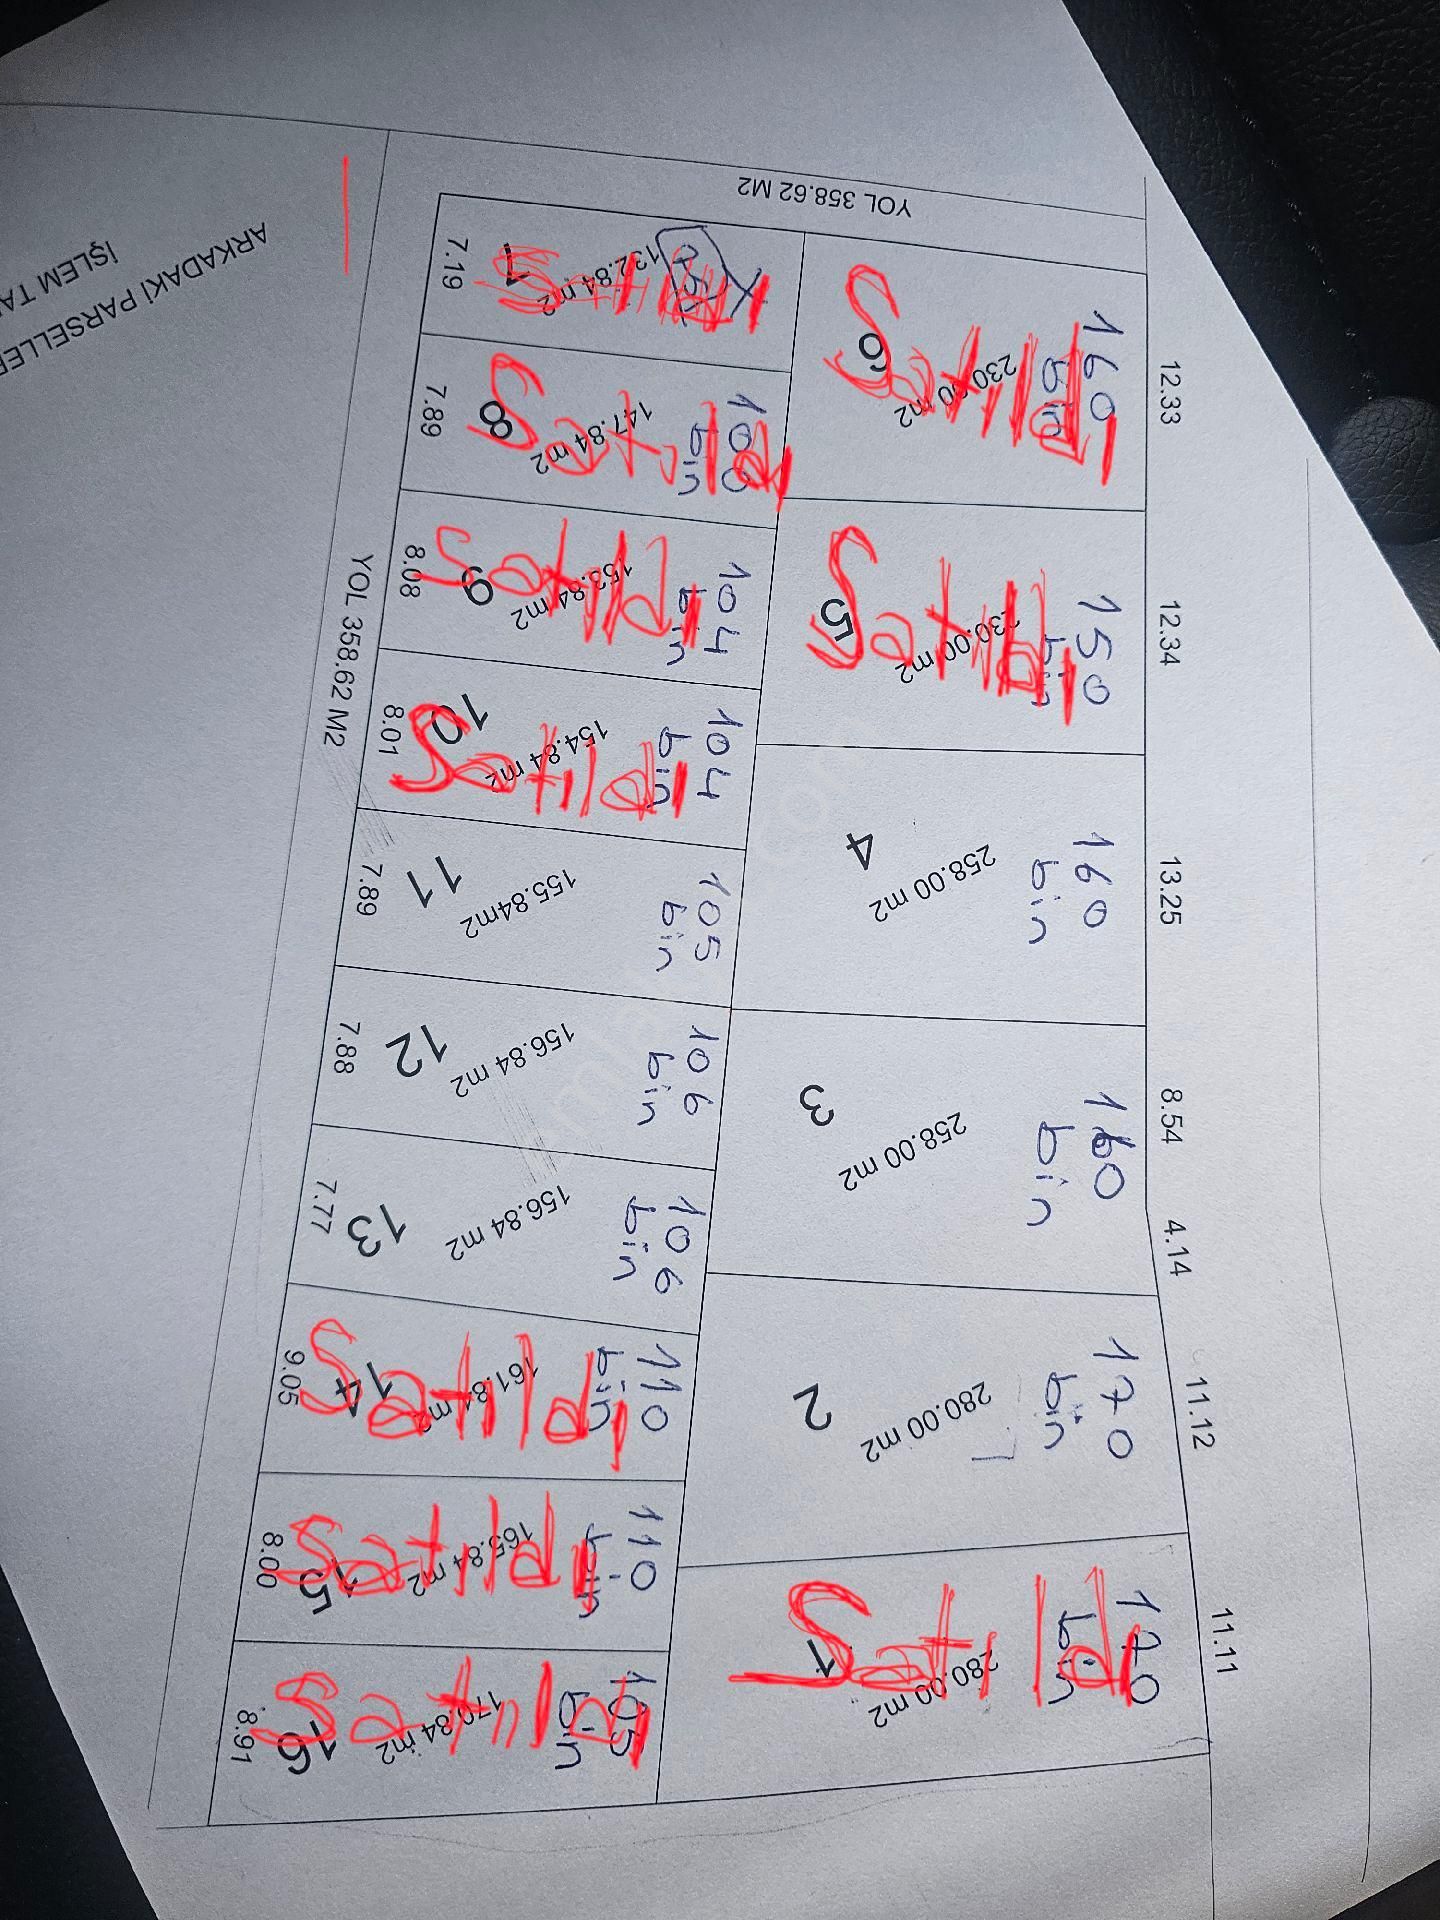 ARKADAKİ PARSELLER
İŞLEM
YOL 358.62 M2
YOL 358.62 M2
7
132.84 m2
7.19
Satıldı
8
147.84 m2
7.89
100
bin
Satıldı
9
153.84 m2
8.08
104
bin
Satıldı
10
154.84 m2
8.01
104
bin
Satıldı
11
155.84m2
7.89
105
bin
12
156.84 m2
7.88
106
bin
13
156.84 m2
7.77
106
bin
14
161.84 m2
9.05
110
bin
Satıldı
15
165.84 m2
8.00
110
bin
Satıldı
16
170.84 m2
8.91
105
bin
Satıldı
6
230.00 m2
12.33
160
bin
Satıldı
5
230.00 m2
12.34
150
bin
Satıldı
4
258.00 m2
13.25
160
bin
3
258.00 m2
8.54
4.14
160
bin
2
280.00 m2
11.12
170
bin
1
280.00 m2
11.11
170
bin
Satıldı